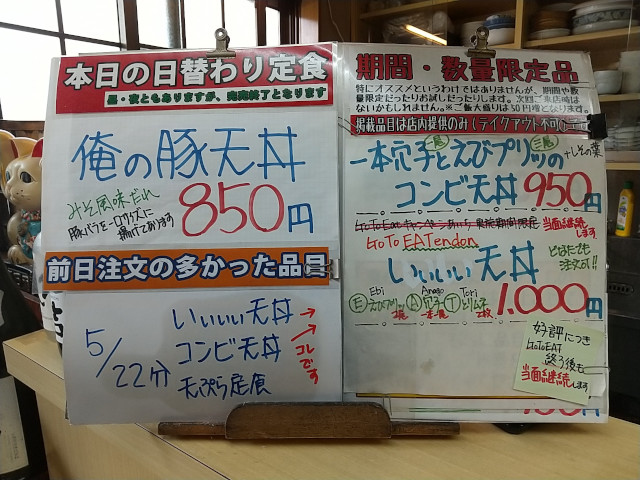 本日の日替わり定食
昼・夜ともありますが、完売終了となります
俺の豚天丼
みそ風味だれ
豚バラをロック状に
揚げてあります
850円
前日注文の多かった品目
5/22分
いいいい天丼
コンビ天丼
天ぷら定食
コレです
期間・数量限定品
特にオススメというわけではありませんが、期間や数
量限定だったりお試しだったりします。次回ご来店時は
ないかもしれません。※ご飯大盛りは50円増となります。
掲載品目は店内提供のみ(テイクアウト不可)
一本穴子とえびプリッの
二尾
+しその葉
コンビ天丼 950円
当面継続
します
GoTo EATendon
どなたでも
注文可!!
いいいい天丼
Ebi Anago Tori
E えびプリッ 2尾 A 穴子 一本 T とりム子 2枚
1.000円
好評につき
GoToEAT
終了後も
当面継続します